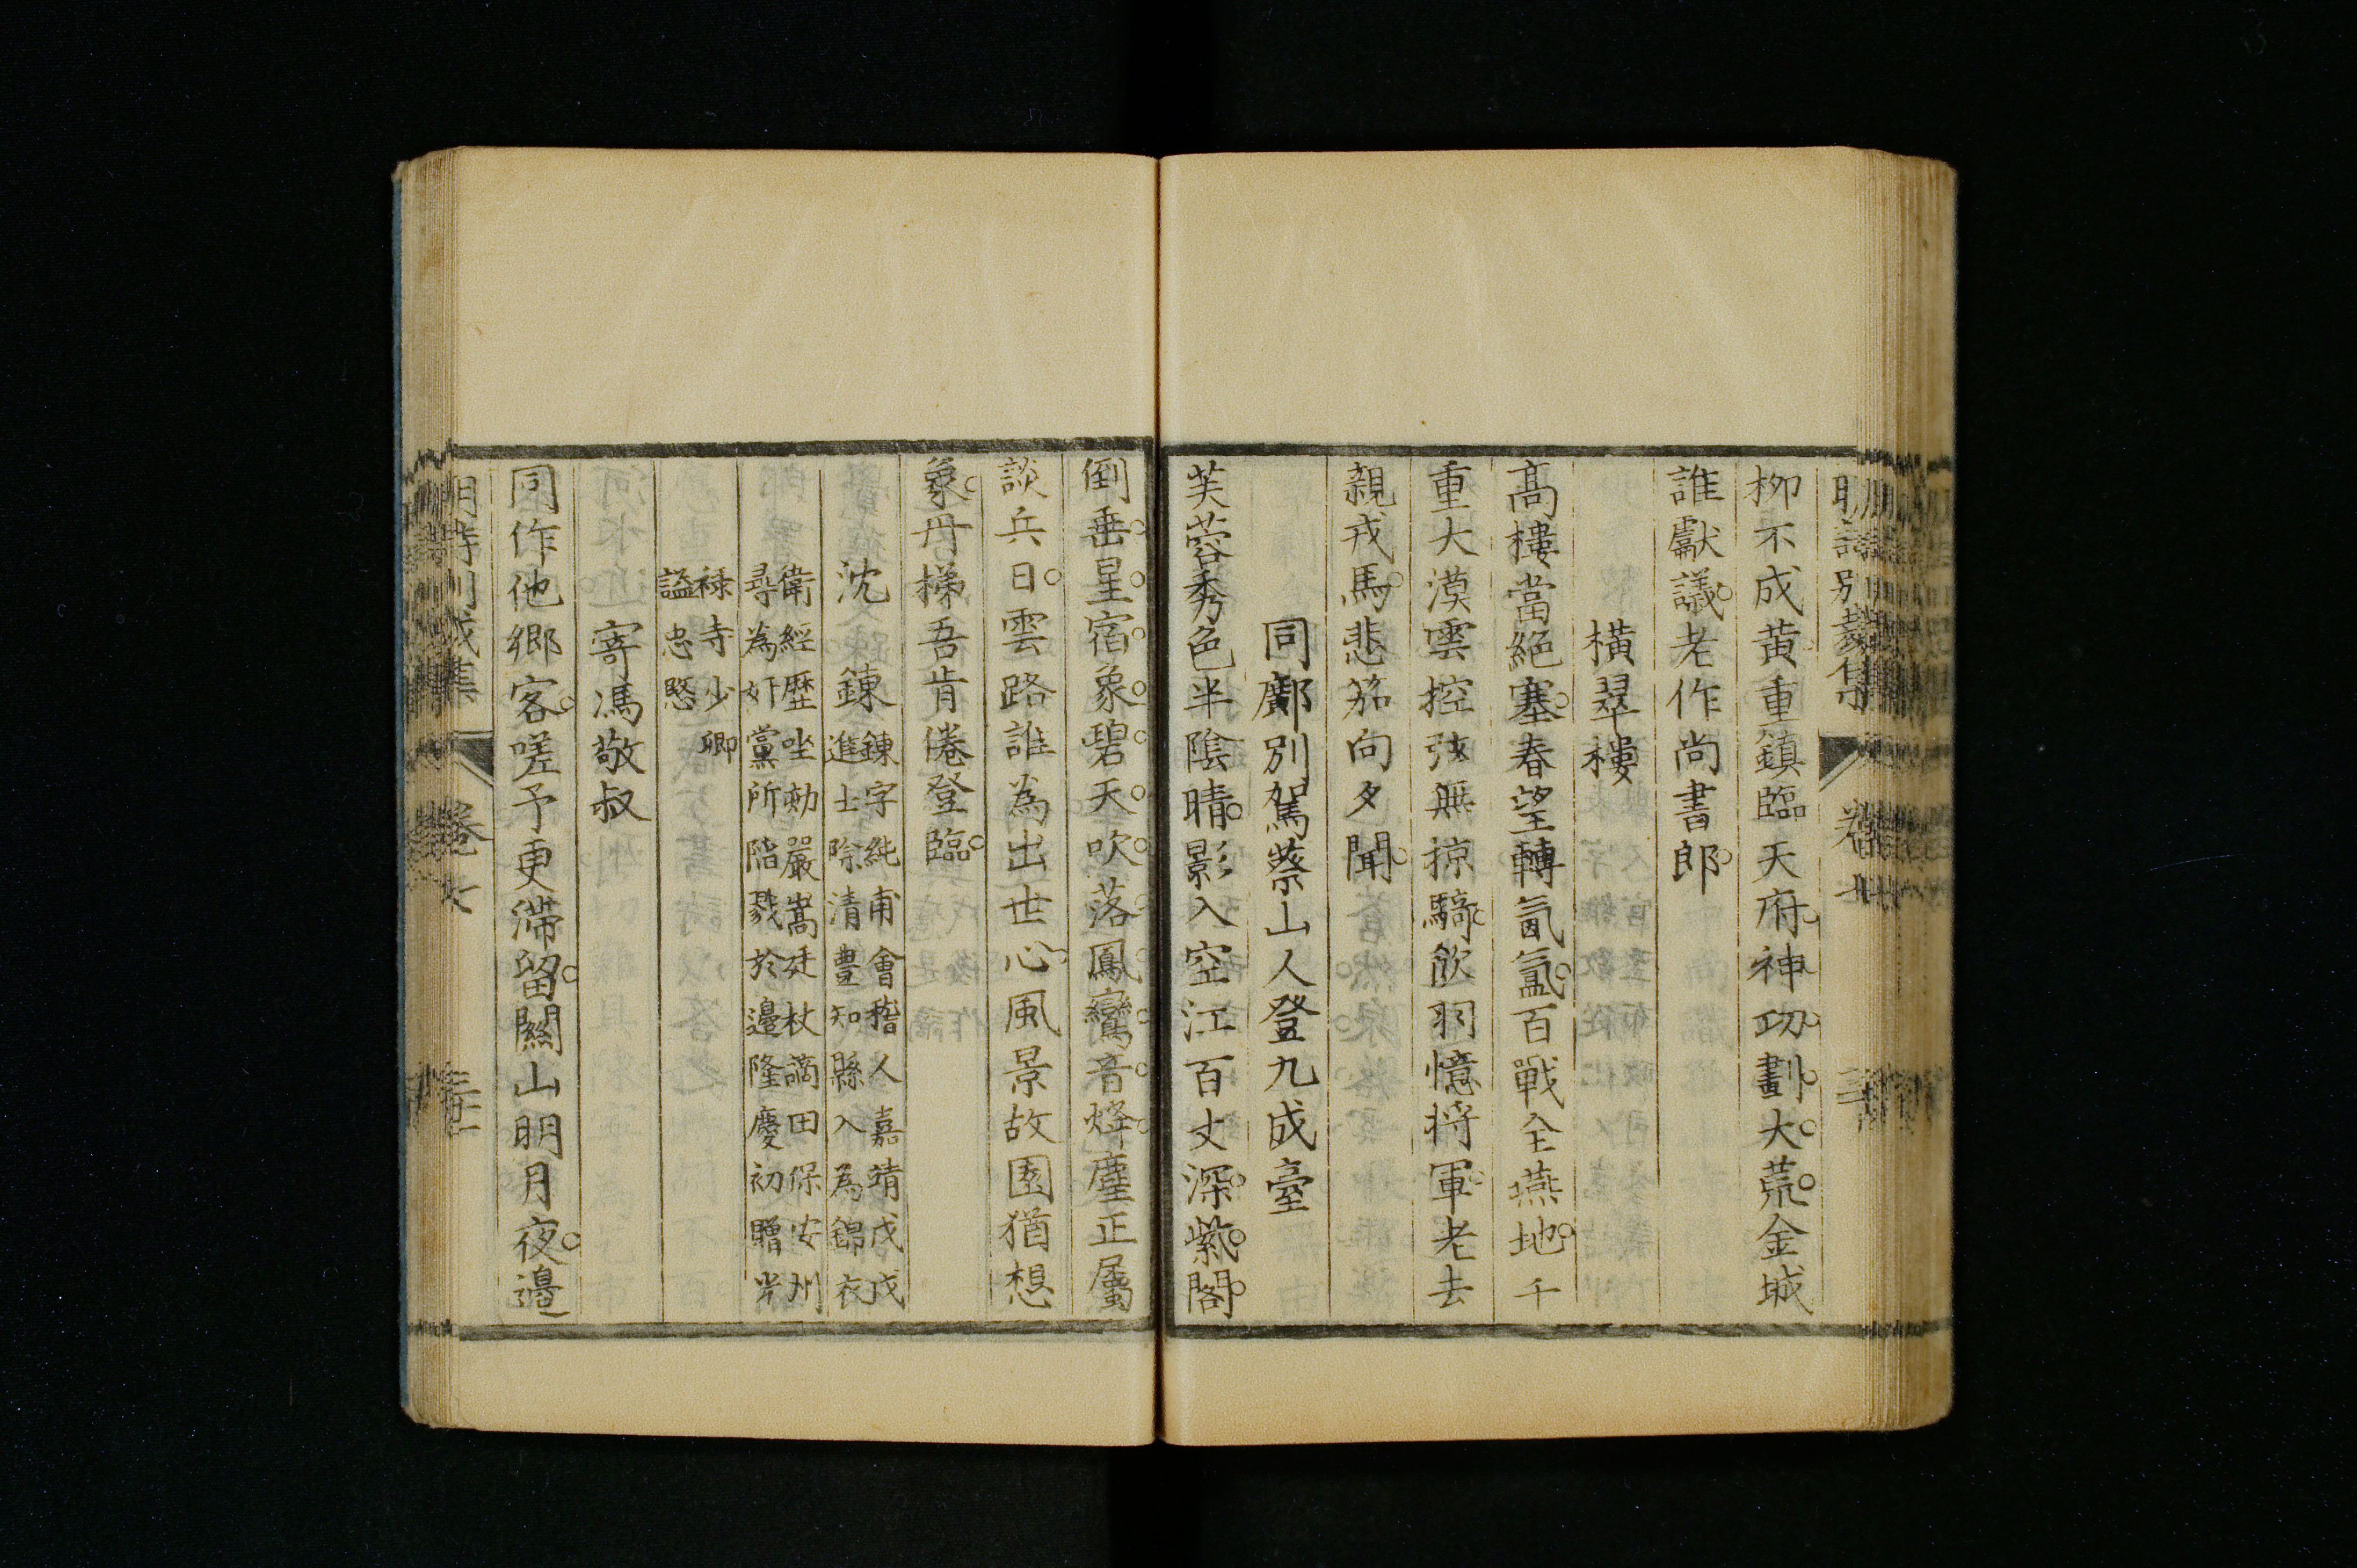 明詩別裁集 卷七
柳不成黃重鎮臨天府神功劃大荒金城
誰獻議老作尚書郎
橫翠樓
高樓當絕塞春望轉氤氳百戰全燕地千
重大漠雲控弦無掠騎飲羽憶將軍老去
親戎馬悲笳向夕聞
同鄺別駕蔡山人登九成臺
芙蓉秀色半陰晴影入空江百丈深紫閣
倒垂星宿象碧天吹落鳳鸞音烽塵正屬
談兵日雲路誰為出世心風景故園猶想
象丹梯吾肯倦登臨
沈鍊
鍊字純甫會稽人嘉靖戊戌
進士除清豊知縣入為錦衣
衛經歷坐劾嚴嵩廷杖謫田保安州
尋為奸黨所陷戮於邊隆慶初贈光
祿寺少卿
謚忠愍
寄馮敬叔
同作他鄉客嗟予更滯留關山明月夜邊
明詩別裁集 卷七